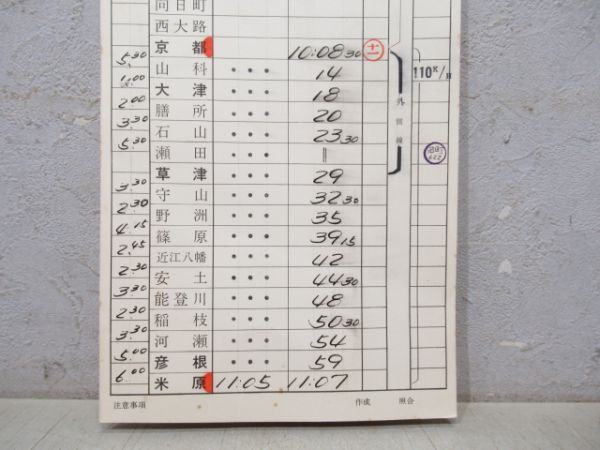 向日町
西大路
京都 10:08 30 十一
5.30 山科 ••• 14 110K/H
1.00 大津 ••• 18
2.00 膳所 ••• 20 外側線
3.30 石山 ••• 23 30
5.30 瀬田 ••• ‖
草津 ••• 29
3.30 守山 ••• 32 30
2.30 野洲 ••• 35
4.15 篠原 ••• 39 15
2.45 近江八幡 ••• 42
2.30 安土 ••• 44 30
3.30 能登川 ••• 48
2.30 稲枝 ••• 50 30
3.30 河瀬 ••• 54
5.00 彦根 ••• 59
6.00 米原 11:05 11:07
注意事項 作成 照合